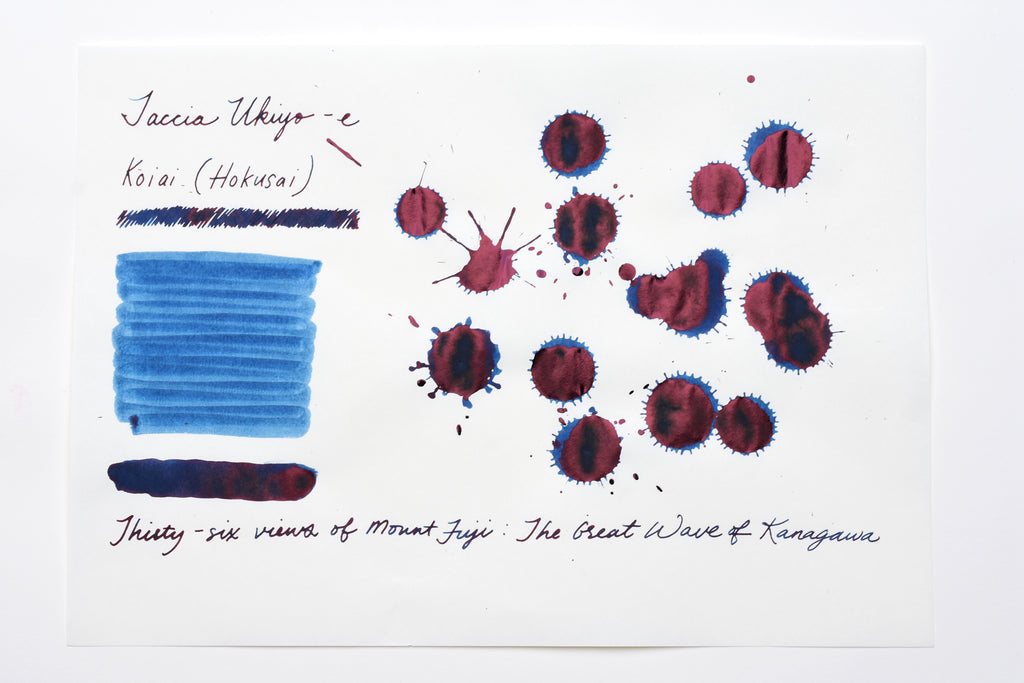 Taccia Ukiyo-e
Koiai (Hokusai)
Thirty-six views of Mount Fuji: The Great Wave of Kanagawa